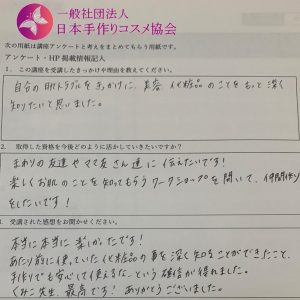 一般社団法人
日本手作りコスメ協会
次の用紙は講座アンケートと考えをまとめてもらう用紙です。
アンケート・HP掲載情報記入
1. この講座を受講したきっかけや理由を教えてください。
自分の肌トラブルをきっかけに、美容、化粧品のことをもっと深く
知りたいと思いました。
2. 取得した資格を今後どのように活かしていきたいですか?
まわりの友達やママ友さん達に伝えたいです!
楽しくお肌のことを知ってもらうワークショップを開いて、仲間作り
をしたいです!
3. 受講された感想をお聞かせください。
本当に本当に楽しかったです!
あたり前に使っていた化粧品の事を深く知ることができたこと、
手作りでも安心して使えるな、という確信が得れました。
くみこ先生、最高です!ありがとうございました。